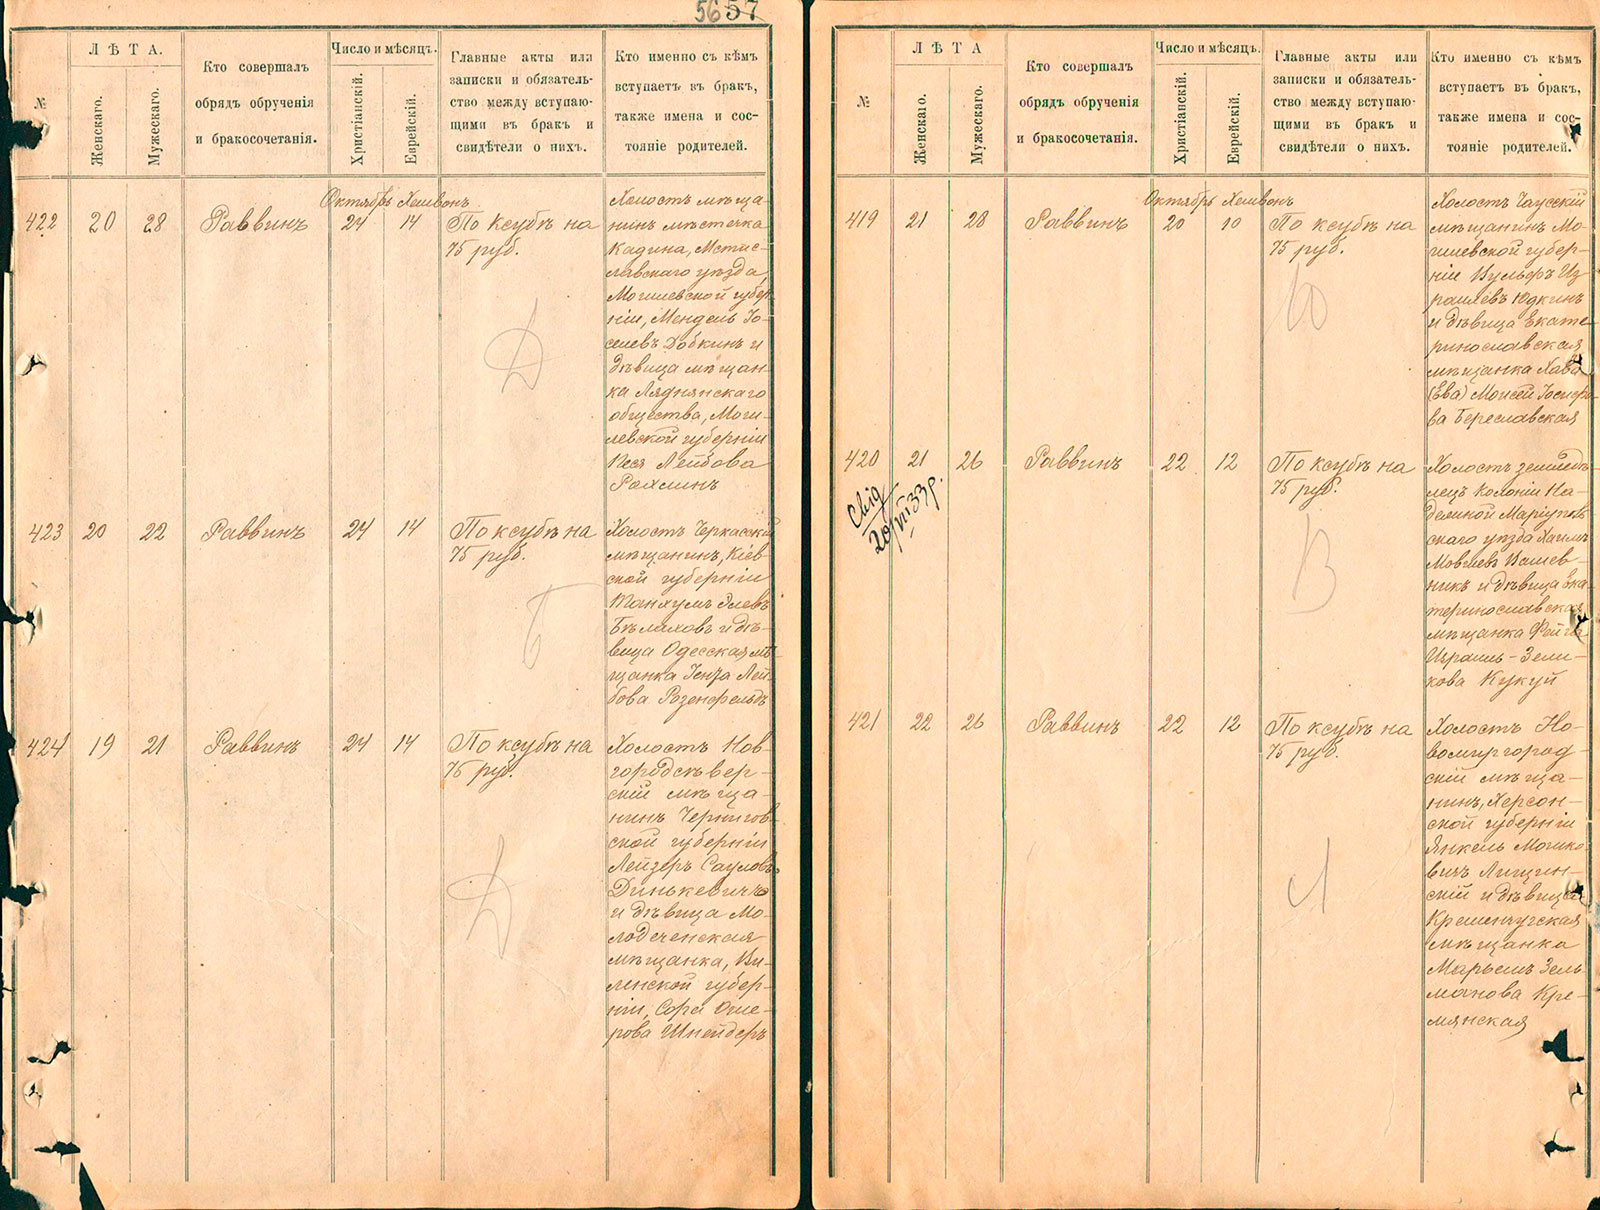 5657
№
ЛѢТА.
Женскаго.
Мужескаго.
Кто совершалъ
обрядъ обрученія
и бракосочетанія.
Число и мѣсяцъ.
Христіанскій.
Еврейскій.
Главные акты или
записки и обязатель-
ство между вступаю-
щими въ бракъ и
свидѣтели о нихъ.
Кто именно съ кѣмъ
вступаетъ въ бракъ,
также имена и сос-
тояніе родителей.
Октябрь Хешвонъ
422 20 28 Раввинъ 24 14
По ксубѣ на
75 руб.
Д
Холостъ мѣща-
нинъ мѣстечка
Кадина, Мстис-
лавскаго уѣзда,
Могилевской губер-
ніи, Мендель Іо-
селевъ Добкинъ и
дѣвица мѣщан-
ка Ляднянскаго
общества, Моги-
левской губерніи
Песя Лейбова
Рахлинъ
423 20 22 Раввинъ 24 14
По ксубѣ на
75 руб.
Б
Холостъ Черкасскій
мѣщанинъ, Кіев-
ской губерніи
Танхумъ Элевъ
Бѣлиховъ и дѣ-
вица Одесская мѣ-
щанка Генза Лей-
бова Розенфельдъ
424 19 21 Раввинъ 24 14
По ксубѣ на
75 руб.
Д
Холостъ Нов-
городсѣвер-
скій мѣща-
нинъ Чернигов-
ской губерніи
Лейзеръ Сауловъ
Динькевичъ
и дѣвица Мо-
лодеченская
мѣщанка, Ви-
ленской губер-
ніи, Сора Оше-
рова Шнейдеръ
№
ЛѢТА
Женскаго.
Мужескаго.
Кто совершалъ
обрядъ обрученія
и бракосочетанія.
Число и мѣсяцъ.
Христіанскій.
Еврейскій.
Главные акты или
записки и обязатель-
ство между вступаю-
щими въ бракъ и
свидѣтели о нихъ.
Кто именно съ кѣмъ
вступаетъ въ бракъ,
также имена и сос-
тояніе родителей.
Октябрь Хешвонъ
419 21 28 Раввинъ 20 10
По ксубѣ на
75 руб.
Ю
Холостъ Чаусскій
мѣщанинъ Мо-
гилевской губер-
ніи Вульфъ Из-
раилевъ Юдкинъ
и дѣвица Екате-
ринославская
мѣщанка Хава
(Ева) Моисей Іосифо-
ва Береславская
420 21 26 Раввинъ 22 12
Свід
20/VI 33 р.
По ксубѣ на
75 руб.
В
Холостъ земледѣ-
лецъ колоніи На-
дежной Маріуполь-
скаго уѣзда Хаимъ
Мовшевъ Вашев-
никъ и дѣвица Ека-
теринославская
мѣщанка Фейга
Израиль-Зели-
кова Кукуй
421 22 26 Раввинъ 22 12
По ксубѣ на
75 руб.
Л
Холостъ Но-
вомиргород-
скій мѣща-
нинъ, Херсон-
ской губерніи
Янкель Мошко-
вичъ Лищин-
скій и дѣвица
Кременчугская
мѣщанка
Марьемъ Зель-
манова Кре-
мянская